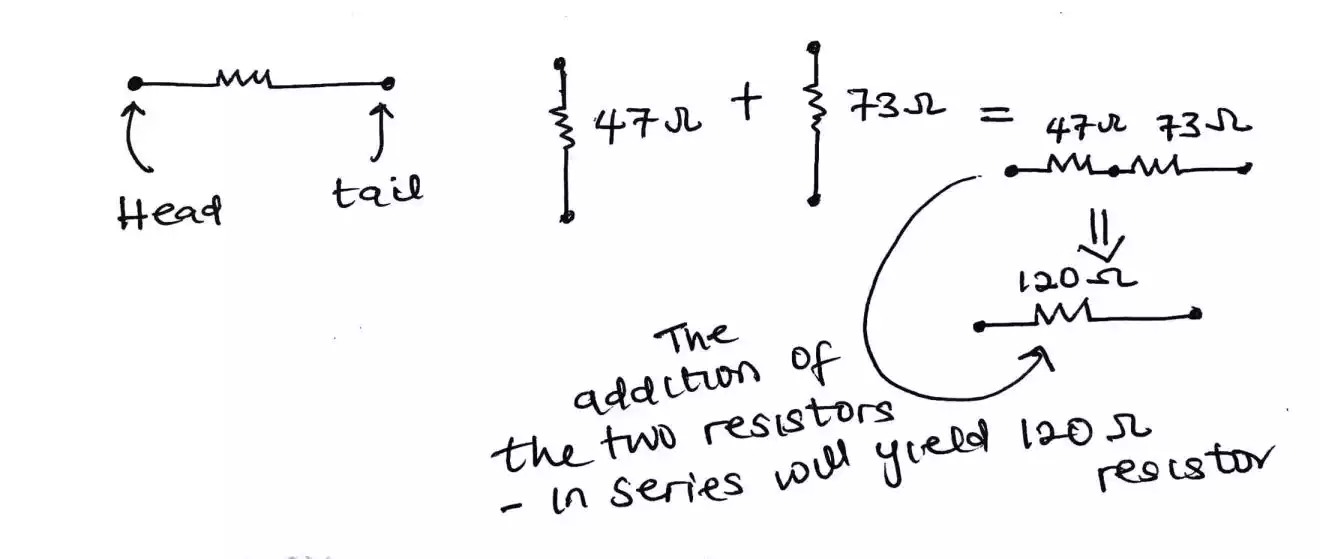 Head
tail
47Ω + 73Ω =
47Ω 73Ω
120Ω
The
addition of
the two resistors
- in series will yield 120Ω
resistor